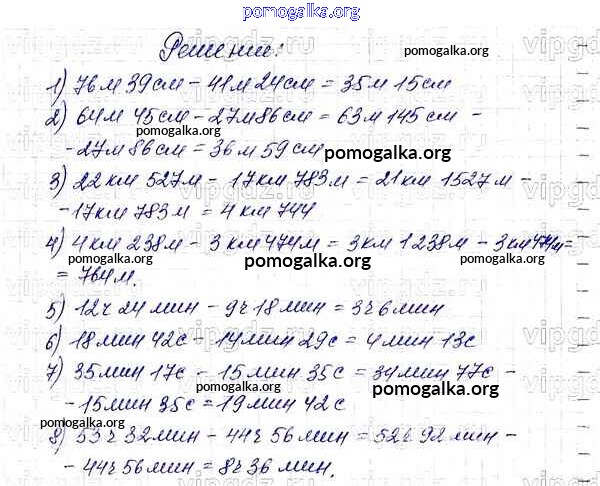 pomogalka.org
Решение:
pomogalka.org
1) 76м 39см - 41м 24см = 35м 15см
2) 64м 45см - 27м 86см = 63м 145см -
pomogalka.org
- 27м 86см = 36м 59см
pomogalka.org
3) 22км 527м - 17км 783м = 21км 1527м -
- 17км 783м = 4км 744
pomogalka.org
4) 4км 238м - 3км 474м = 3км 1238м - 3км 474м =
pomogalka.org
= 764м.
5) 12ч 24мин - 9ч 18мин = 3ч 6мин
pomogalka.org
6) 18мин 42с - 14мин 29с = 4мин 13с
7) 35мин 17с - 15мин 35с = 34мин 77с -
pomogalka.org
pomogalka.org
- 15мин 35с = 19мин 42с
pomogalka.org
8) 53ч 32мин - 44ч 56мин = 52ч 92мин -
- 44ч 56мин = 8ч 36 мин.
pomogalka.org